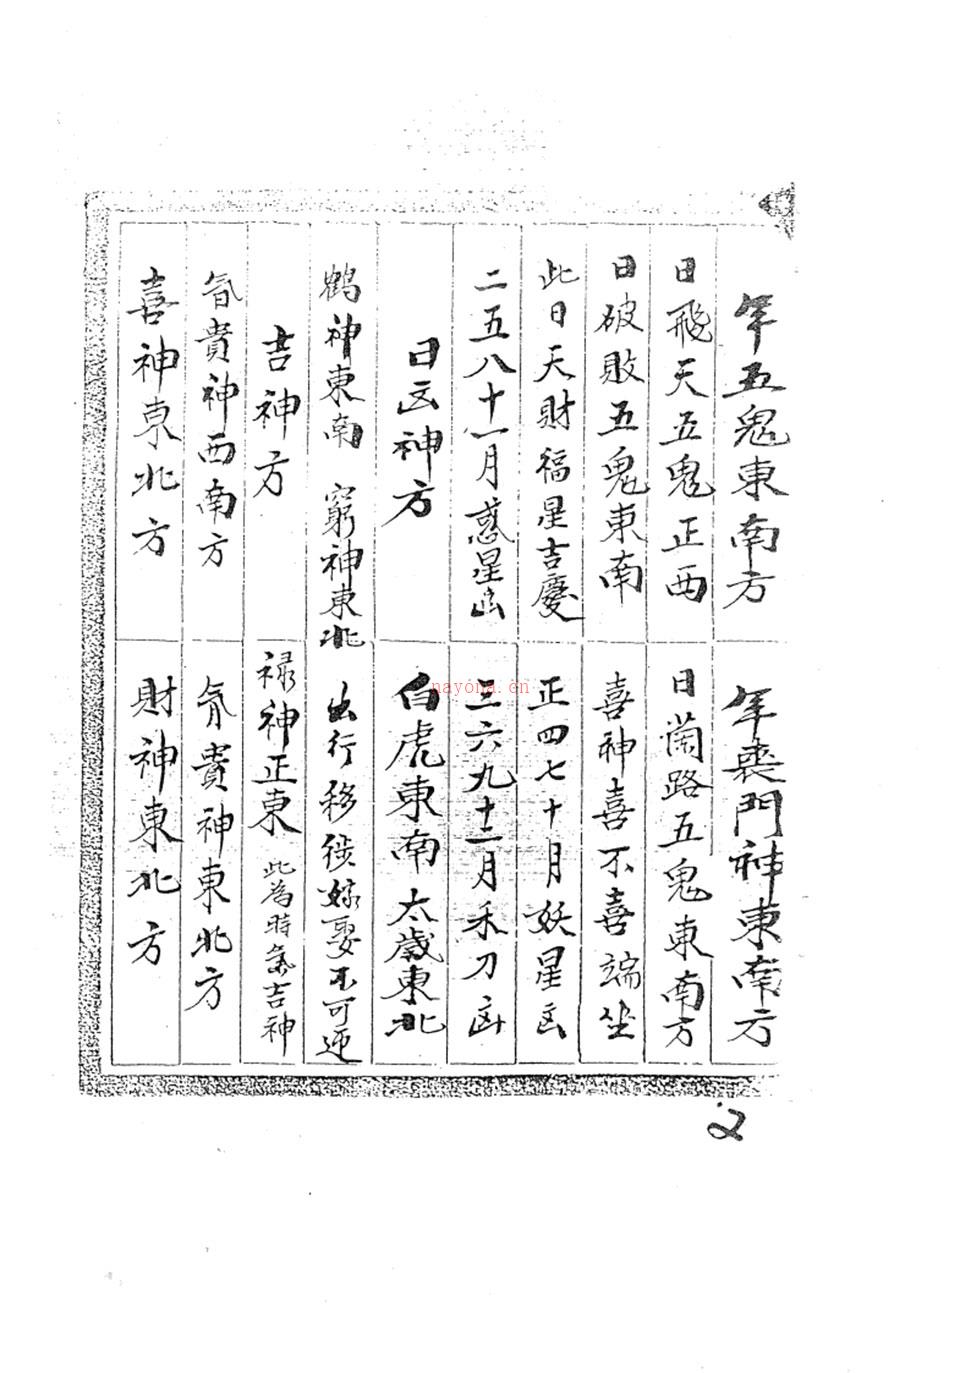 年五鬼東南方
年喪門神東南方
日飛天五鬼正西
日蘭路五鬼東南方
日破敗五鬼東南
喜神喜不喜端坐
此日天財福星吉慶
正四七十月妖星凶
二五八十一月惑星凶
三六九十二月禾刀凶
日凶神方
白虎東南太歲東北
鶴神東南 窮神東北
出行移徙嫁娶不可迎
吉神方
祿神正東 此為時家吉神
貴神西南方
貴神東北方
喜神東北方
財神東北方
nayona.cn
2